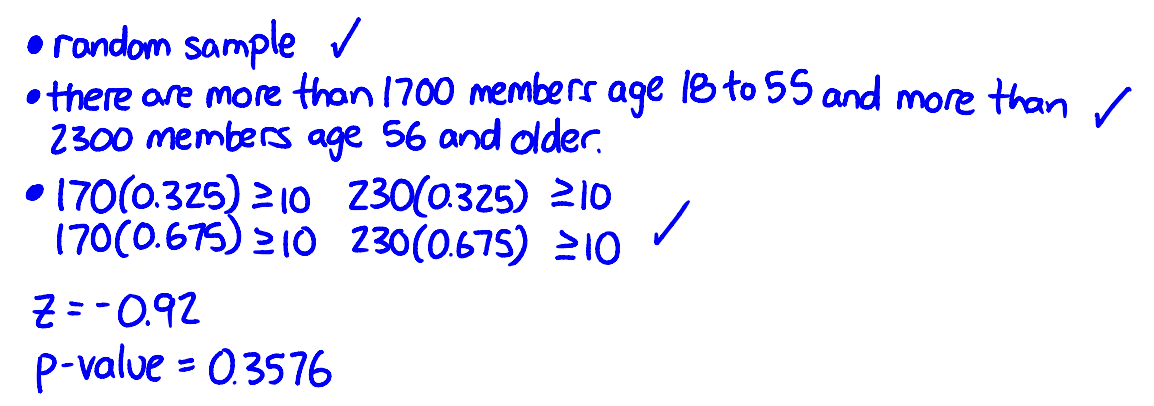 • random sample ✓
• there are more than 1700 members age 18 to 55 and more than ✓
2300 members age 56 and older.
• 170(0.325) ≥ 10 230(0.325) ≥ 10
170(0.675) ≥ 10 230(0.675) ≥ 10 ✓
z = -0.92
p-value = 0.3576